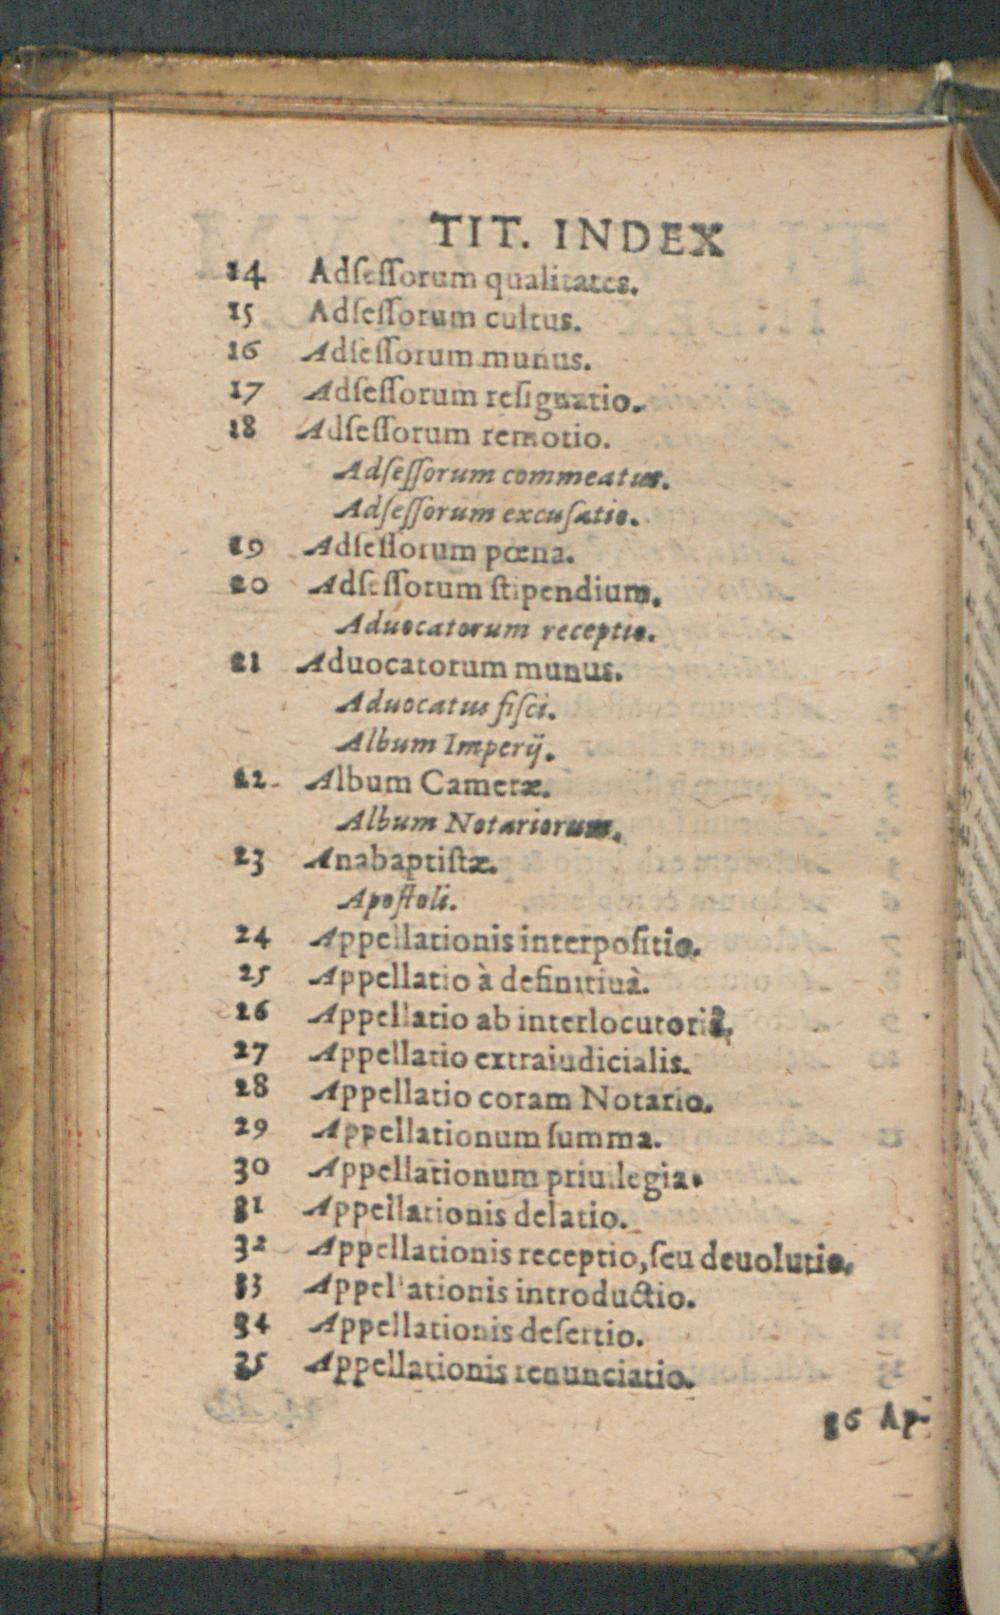 TIT. INDEX
14 Adſeſſorum qualitates.
15 Adſeſſorum cultus.
16 Adſeſſorum munus.
17 Adſeſſorum reſignatio.
18 Adſeſſorum remotio.
Adſeſſorum commeatus.
Adſeſſorum excuſatio.
19 Adſeſſorum pœna.
20 Adſeſſorum ſtipendium.
Aduocatorum receptio.
21 Aduocatorum munus.
Aduocatus fiſci.
Album Imperij.
22 Album Cameræ.
Album Notariorum.
23 Anabaptiſtæ.
Apoſtoli.
24 Appellationis interpoſitio.
25 Appellatio à definitiuâ.
26 Appellatio ab interlocutoriâ.
27 Appellatio extraiudicialis.
28 Appellatio coram Notario.
29 Appellationum ſumma.
30 Appellationum priuilegia.
31 Appellationis delatio.
32 Appellationis receptio, ſeu deuolutio.
33 Appellationis introductio.
34 Appellationis deſertio.
35 Appellationis renunciatio.
36 Ap-